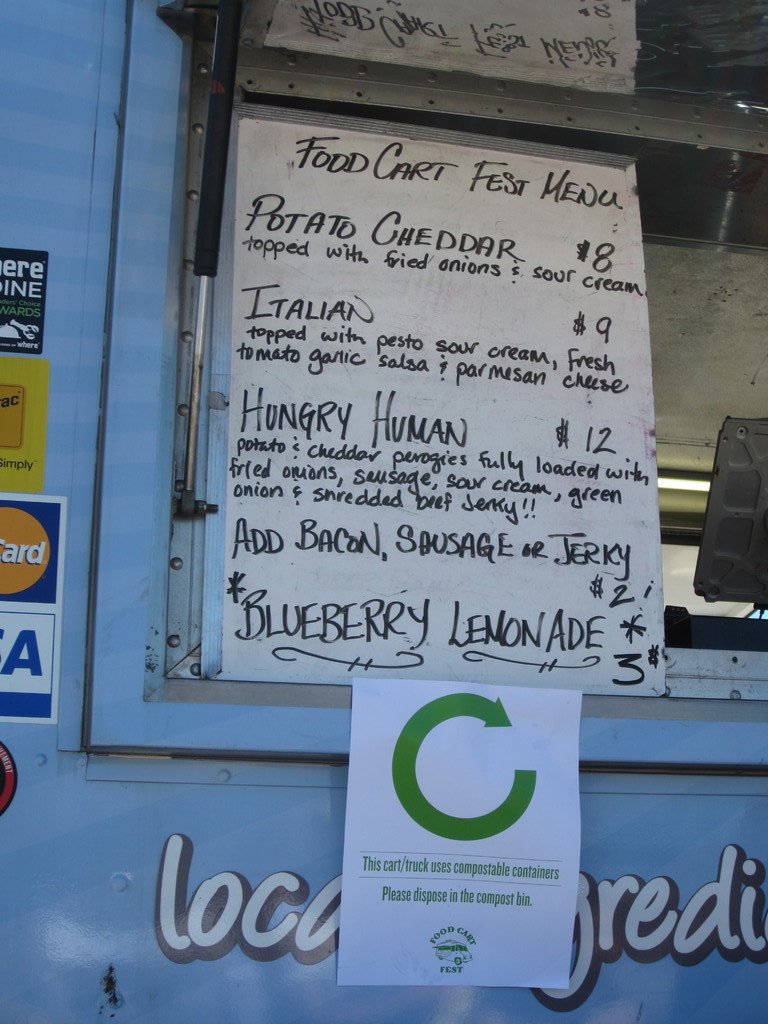 FOOD CART FEST MENU
POTATO CHEDDAR $8
topped with fried onions & sour cream
ITALIAN $9
topped with pesto sour cream, fresh
tomato garlic salsa & parmesan cheese
HUNGRY HUMAN $12
potato & cheddar perogies fully loaded with
fried onions, sausage, sour cream, green
onion & shredded beef jerky!!
ADD BACON, SAUSAGE OR JERKY
$2
*BLUEBERRY LEMONADE*
3$
ere
DINE
AWARDS
where
ac
Simply
Card
SA
This cart/truck uses compostable containers
Please dispose in the compost bin.
FOOD CART
FEST
loca gredi